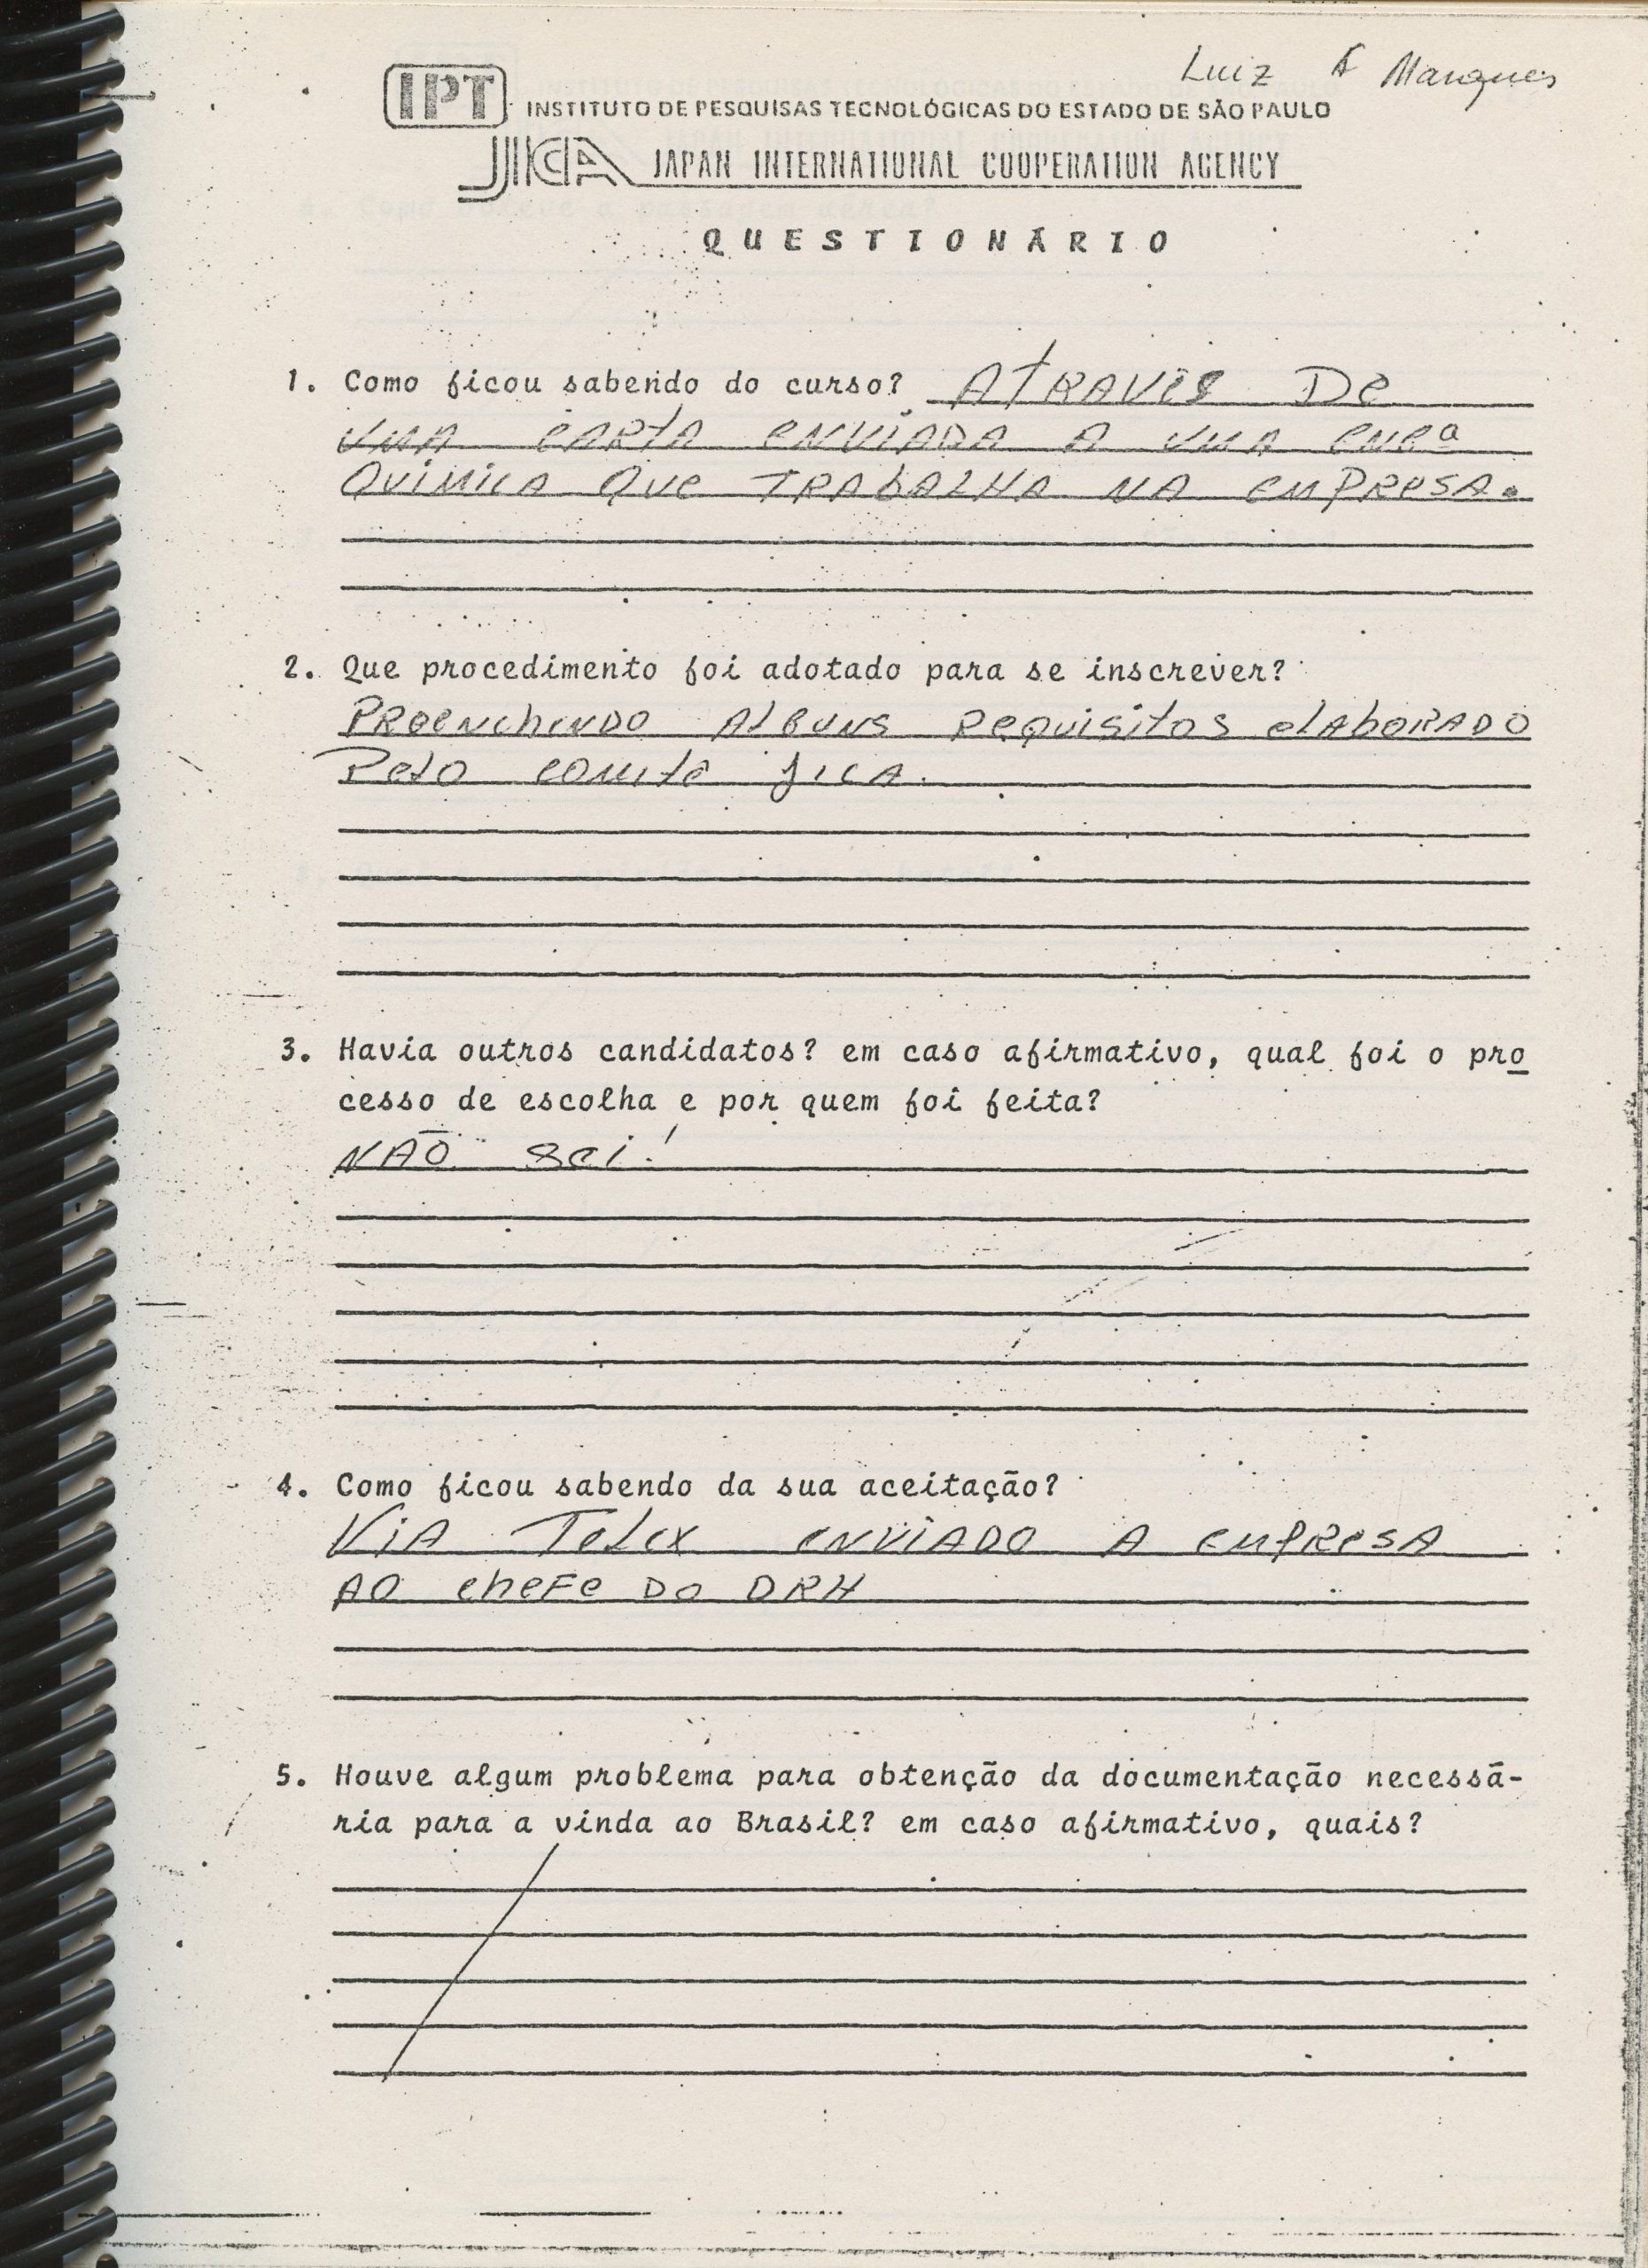 Luiz A Marques
IPT INSTITUTO DE PESQUISAS TECNOLÓGICAS DO ESTADO DE SÃO PAULO
JICA JAPAN INTERNATIONAL COOPERATION AGENCY
QUESTIONÁRIO
1. Como ficou sabendo do curso? ATRAVÉS DE
UMA CARTA ENVIADA A UMA ENGª
QUIMICA QUE TRABALHA NA EMPRESA.
2. Que procedimento foi adotado para se inscrever?
PREENCHENDO ALGUNS REQUISITOS ELABORADO
PELO COMITÊ JICA.
3. Havia outros candidatos? em caso afirmativo, qual foi o pro
cesso de escolha e por quem foi feita?
NÃO SEI!
4. Como ficou sabendo da sua aceitação?
VIA TELEX ENVIADO A EMPRESA
AO CHEFE DO DRH
5. Houve algum problema para obtenção da documentação necessá-
ria para a vinda ao Brasil? em caso afirmativo, quais?